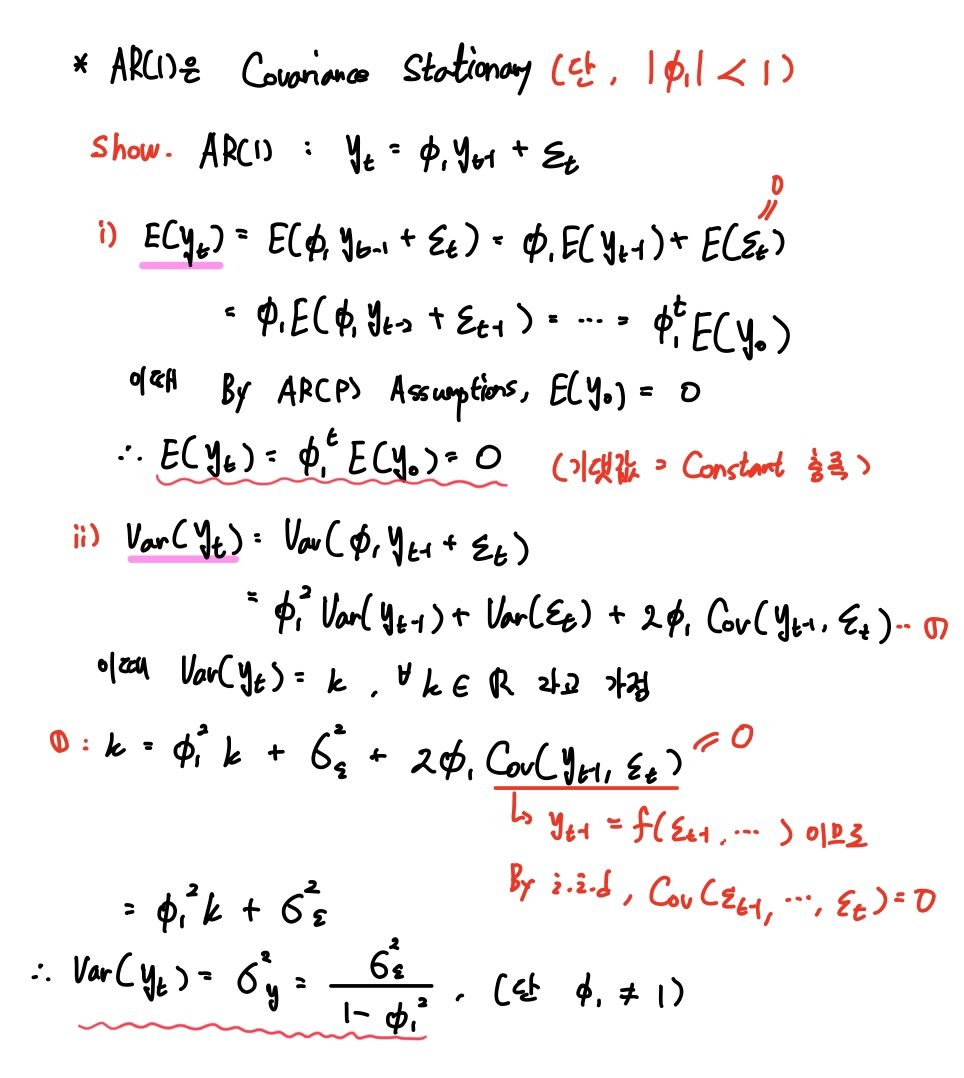 * AR(1)은 Covariance Stationary (단, |ϕ₁| < 1)
Show. AR(1) : yₜ = ϕ₁yₜ₋₁ + εₜ
i) E(yₜ) = E(ϕ₁yₜ₋₁ + εₜ) = ϕ₁E(yₜ₋₁) + E(εₜ) = 0
= ϕ₁E(ϕ₁yₜ₋₂ + εₜ₋₁) = ⋯ = ϕ₁ᵗE(y₀)
이때 By AR(P) Assumptions, E(y₀) = 0
∴ E(yₜ) = ϕ₁ᵗE(y₀) = 0 (기댓값 = Constant 충족)
ii) Var(yₜ) = Var(ϕ₁yₜ₋₁ + εₜ)
= ϕ₁²Var(yₜ₋₁) + Var(εₜ) + 2ϕ₁Cov(yₜ₋₁, εₜ) ⋯ ①
이때 Var(yₜ) = k, ∀k ∈ ℝ 라고 가정
① : k = ϕ₁²k + σ²_ε + 2ϕ₁Cov(yₜ₋₁, εₜ) = 0
↳ yₜ₋₁ = f(εₜ₋₁, ⋯) 이므로
By i.i.d, Cov(εₜ₋₁, ⋯, εₜ) = 0
= ϕ₁²k + σ²_ε
∴ Var(yₜ) = σ²_y = σ²_ε / (1 - ϕ₁²). (단 ϕ₁ ≠ 1)